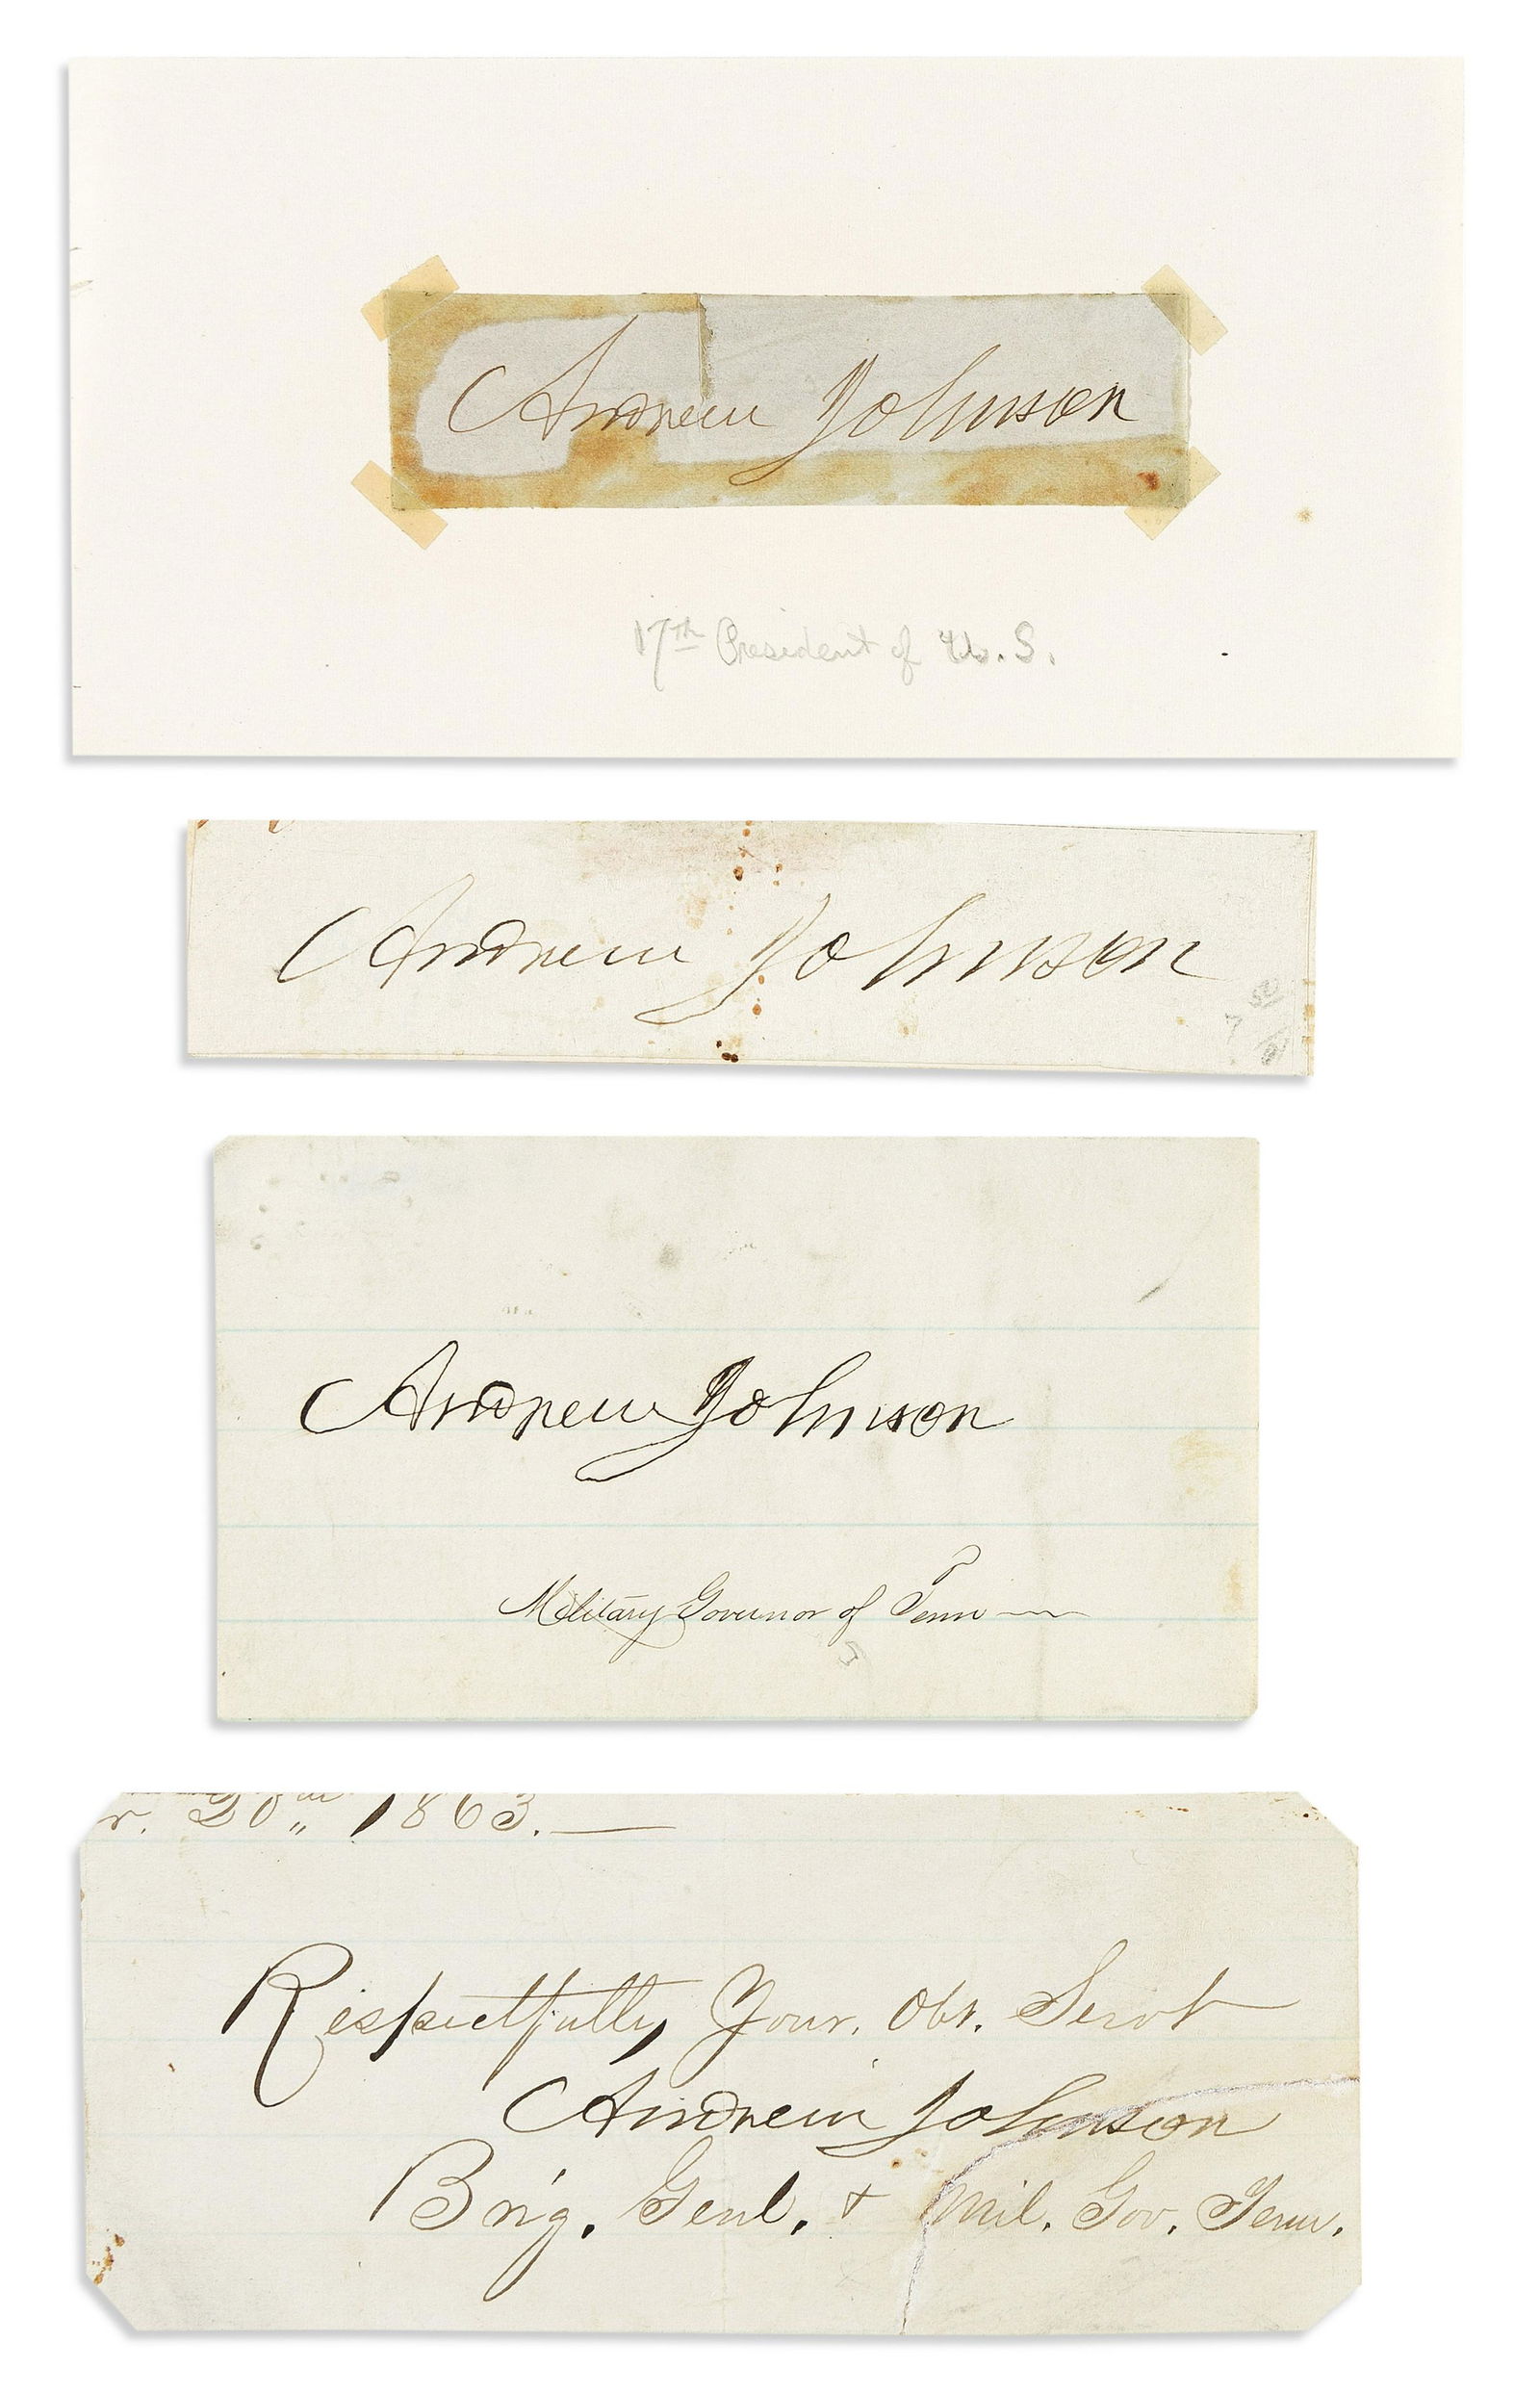 Andrew Johnson
17th President of U. S.
Andrew Johnson
Andrew Johnson
Military Governor of Tenn
r. 20th 1863.
Respectfully Your. Obt. Servt
Andrew Johnson
Brig. Genl. + Mil. Gov. Tenn.